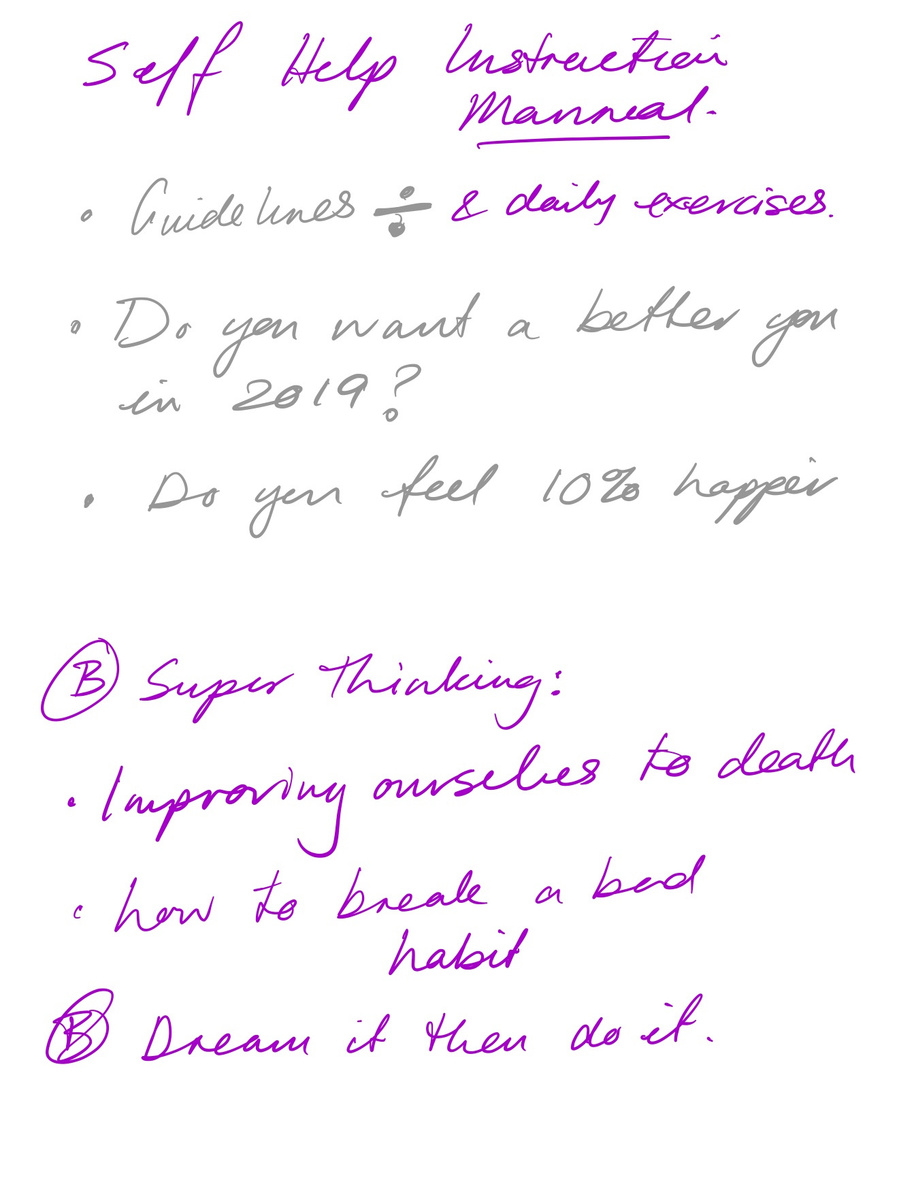 Self Help Instruction
Manual.
• Guidelines ÷ & daily exercises.
• Do you want a better you
in 2019?
• Do you feel 10% happier
Ⓑ Super Thinking:
• Improving ourselves to death
• how to break a bad
habit
Ⓑ Dream it then do it.